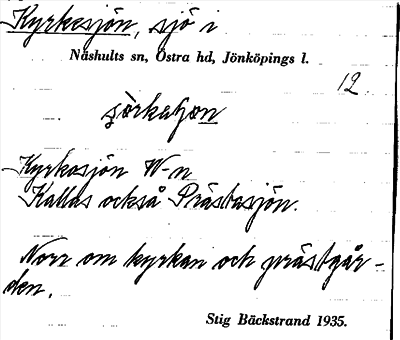 Kyrkesjön, sjö i
Näshults sn, Östra hd, Jönköpings l.
12.
Kyrkosjön W-n
Kallas också Prästasjön.
Norr om kyrkan och prästgår-
den.
Stig Bäckstrand 1935.